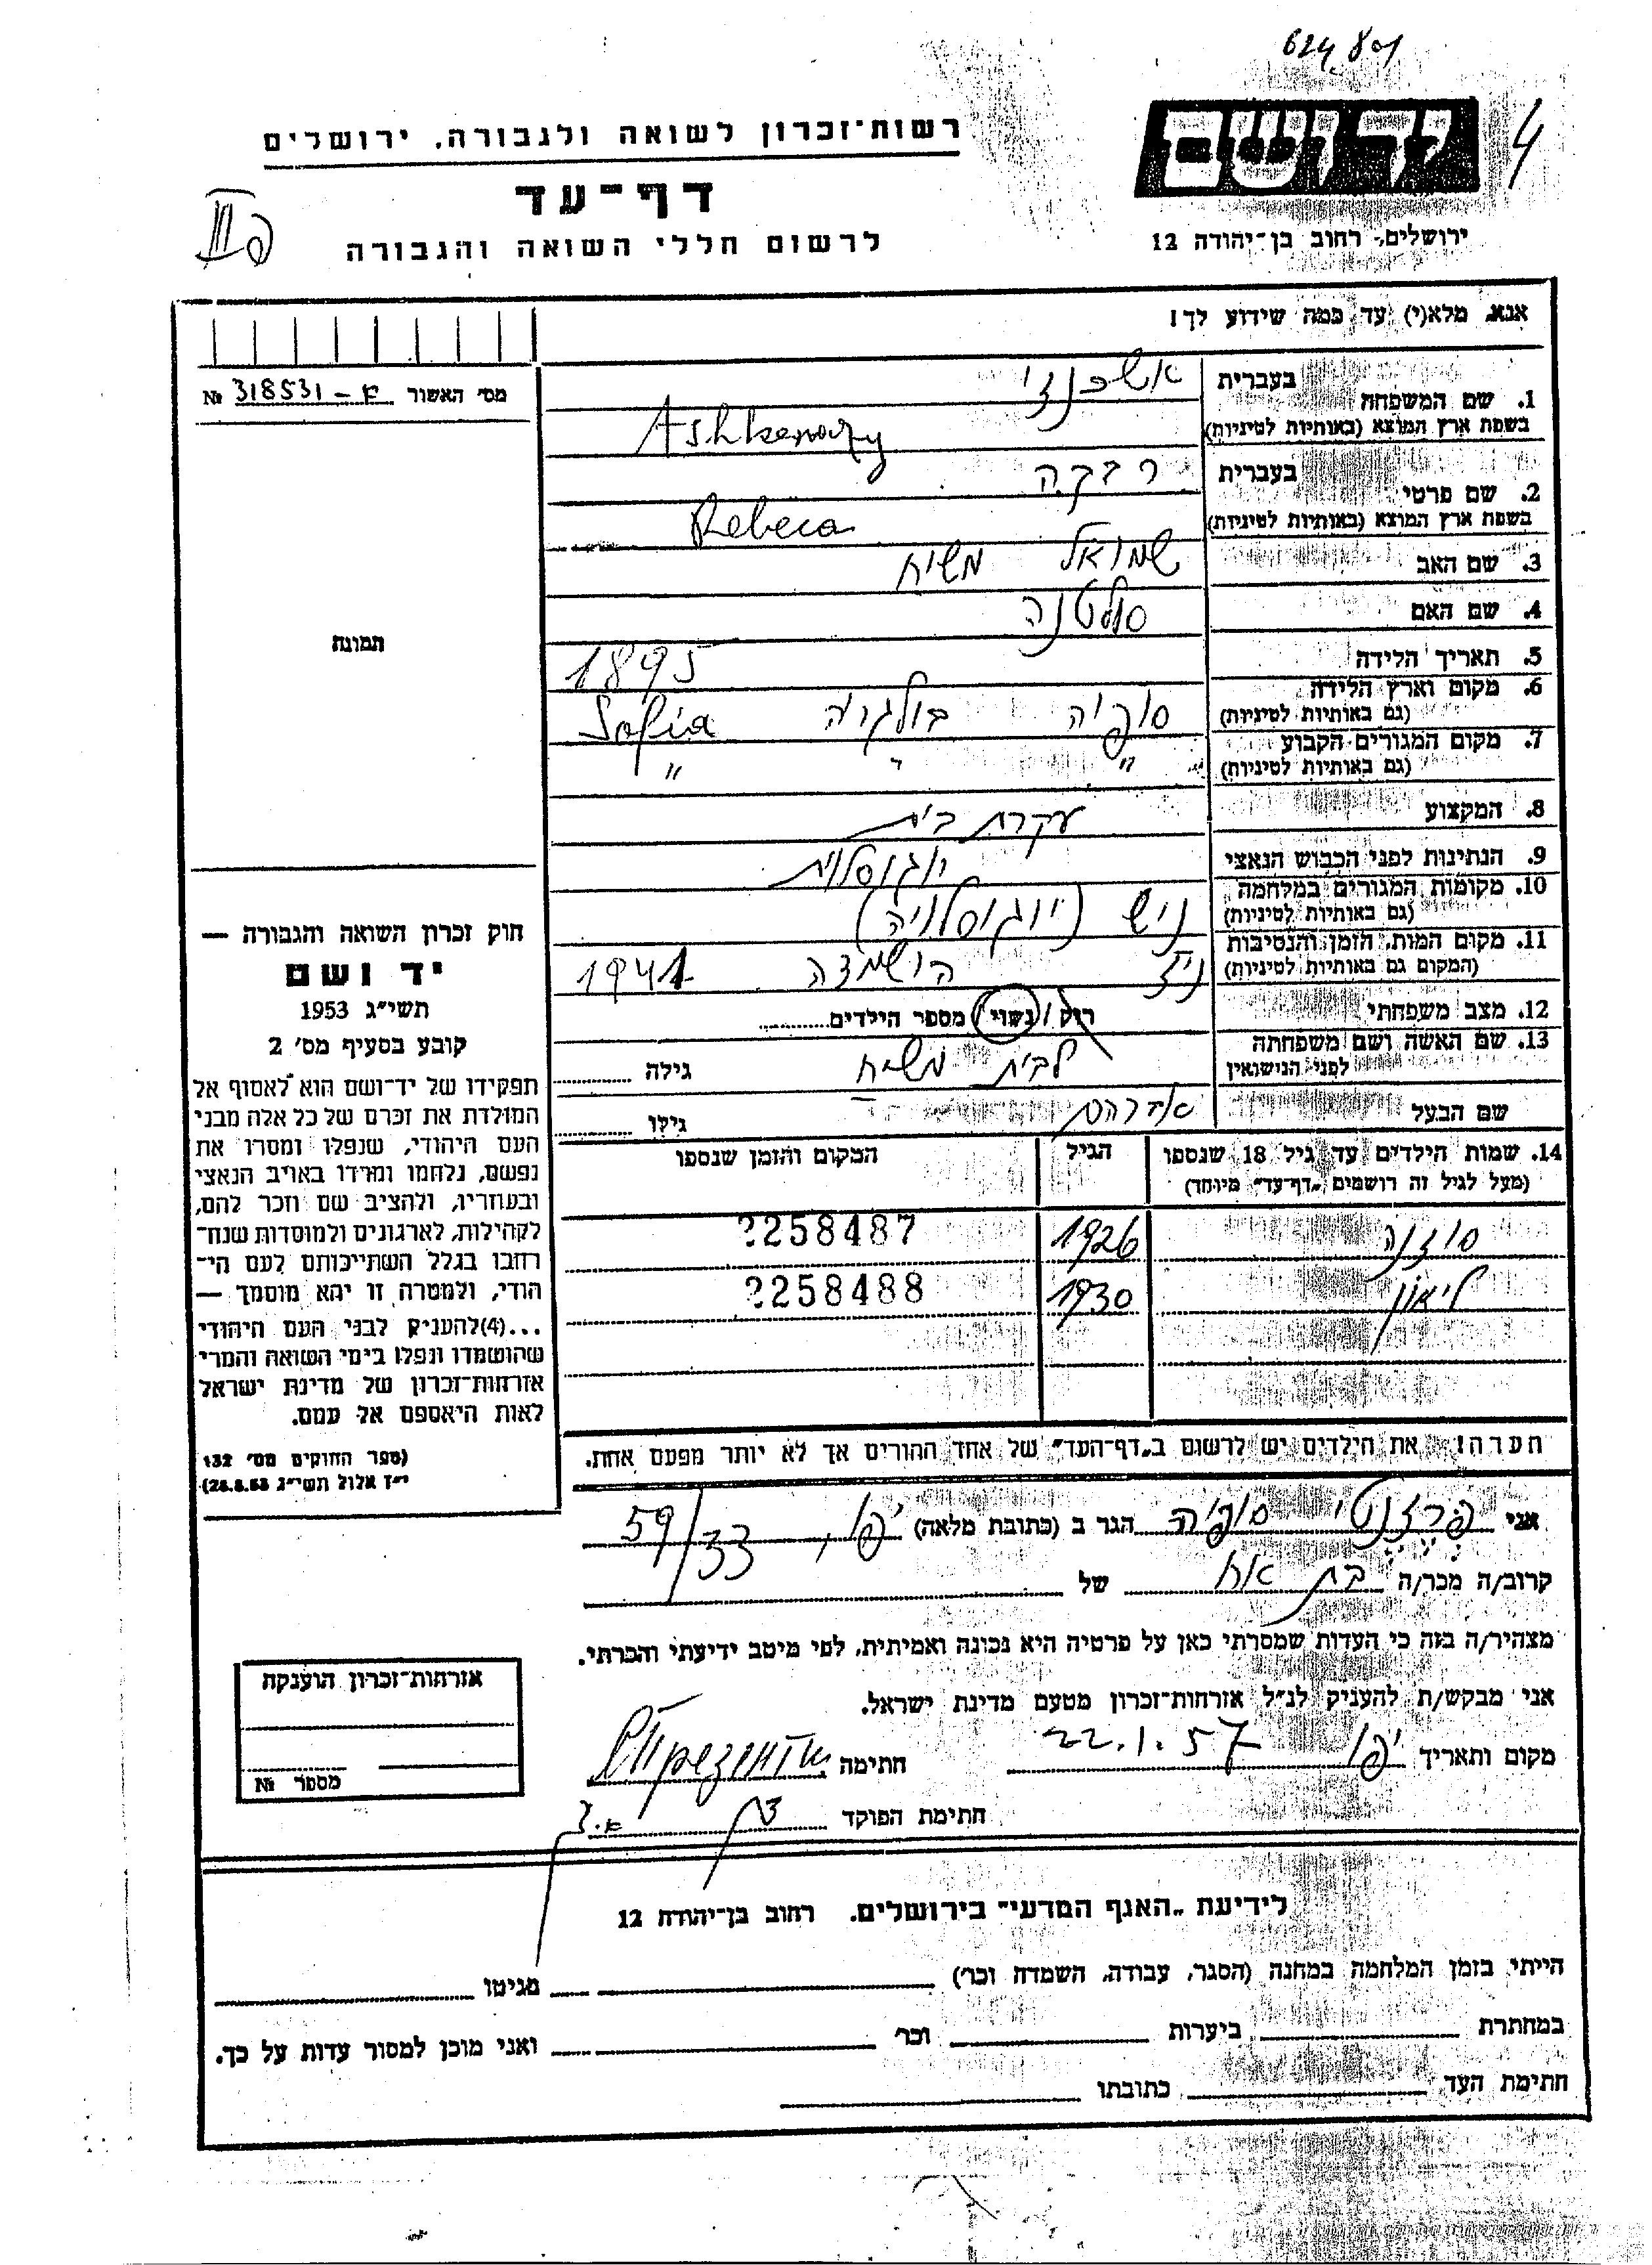 624801
4
יד ושם
ירושלים, רחוב בן־יהודה 12
רשות־זכרון לשואה ולגבורה. ירושלים
דף־עד
לרשום חללי השואה והגבורה
אנא, מלא(י) עד כמה שידוע לך!
מס׳ האשור א – 318531 №
תמונה
1. שם המשפחה בעברית אשכנזי
בשפת ארץ המוצא (באותיות לטיניות) Ashkenazy
2. שם פרטי בעברית רבקה
בשפת ארץ המוצא (באותיות לטיניות) Rebeca
3. שם האב שמואל משיח
4. שם האם סולטנה
5. תאריך הלידה 1895
6. מקום וארץ הלידה (גם באותיות לטיניות) סופיה בולגריה Sofia
7. מקום המגורים הקבוע (גם באותיות לטיניות) " " "
8. המקצוע עקרת בית
9. הנתינות לפני הכבוש הנאצי יוגוסלוית
10. מקומות המגורים במלחמה (גם באותיות לטיניות) ניש (יוגוסלויה)
11. מקום המות, הזמן והנסיבות (המקום גם באותיות לטיניות) ניש הושמדה 1941
12. מצב משפחתי רוק / נשוי / מספר הילדים
13. שם האשה ושם משפחתה לפני הנישואין לבית משיח גילה
שם הבעל אברהם גילו
14. שמות הילדים עד גיל 18 שנספו הגיל המקום והזמן שנספו
(מעל לגיל זה רושמים „דף־עד״ מיוחד)
סוזנה 1926 2258487
ליאון 1930 2258488
הערה! את הילדים יש לרשום ב„דף־העד״ של אחד ההורים אך לא יותר מפעם אחת.
חוק זכרון השואה והגבורה —
יד ושם
תשי״ג 1953
קובע בסעיף מס׳ 2
תפקידו של יד־ושם הוא לאסוף אל
המולדת את זכרם של כל אלה מבני
העם היהודי, שנפלו ומסרו את
נפשם, נלחמו ומרדו באויב הנאצי
ובעוזריו, ולהציב שם וזכר להם,
לקהילות, לארגונים ולמוסדות שנח־
רחבו בגלל השתייכותם לעם הי־
הודי, ולמטרה זו יהא מוסמך —
...(4)להעניק לבני העם היהודי
שהושמדו ונפלו בימי השואה והמרי
אזרחות־זכרון של מדינת ישראל
לאות היאספם אל עמם.
(ספר החוקים מס׳ 132
י״ז אלול תשי״ג 28.8.53)
אני פרזנטי סופיה הגר ב (כתובת מלאה) יפו, 59/33
קרוב/ה מכר/ה בת אח של
מצהיר/ה בזה כי העדות שמסרתי כאן על פרטיה היא נכונה ואמיתית, לפי מיטב ידיעתי והכרתי.
אני מבקש/ת להעניק לנ״ל אזרחות־זכרון מטעם מדינת ישראל.
מקום ותאריך יפו 22.1.57 חתימה
חתימת הפוקד
אזרחות־זכרון הוענקה
מספר №
לידיעת „האגף המדעי״ בירושלים. רחוב בן־יהודה 12
הייתי בזמן המלחמה במחנה (הסגר, עבודה, השמדה וכו׳) בגיטו
במחתרת ביערות וכו׳ ואני מוכן למסור עדות על כך.
חתימת העד כתובתו